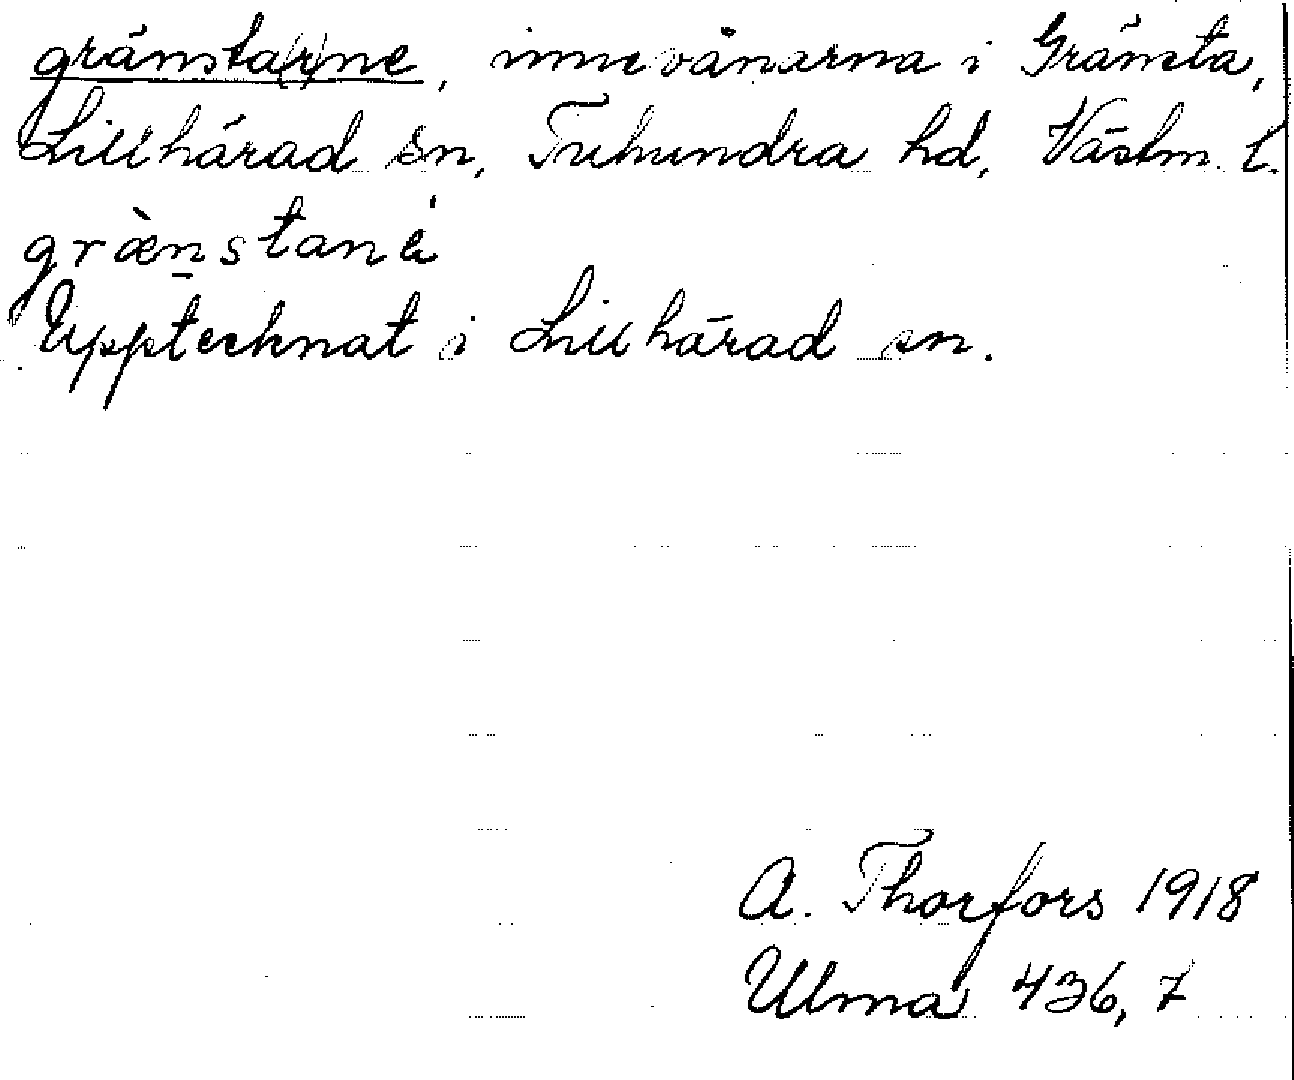 gränsta(r)ne, innevånarna i Gränsta,
Lillhärad sn, Tuhundra hd, Västm. l.
græ̀nstanè
Upptecknat i Lillhärad sn.
A. Thorfors 1918
Ulma 436, 7